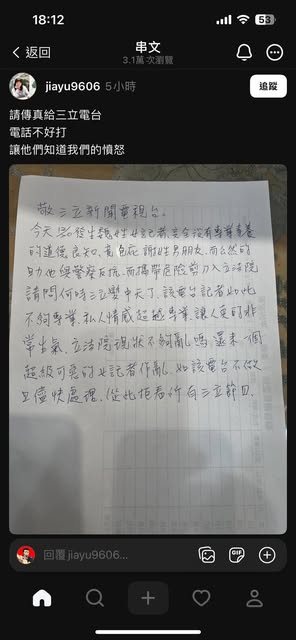 18:12
53
返回
串文
3.1萬 次瀏覽
jiayu9606 5小時
追蹤
請傳真給三立電台
電話不好打
讓他們知道我們的憤怒
敬三立新聞電視台.
今天 發生魏姓女記者,完全沒有專業素養
的道德良知,責包庇謝姓男朋友,而公然的
助他與警察反抗,而攜帶危險剪刀入立法院
請問何時三立變中天了.該電台記者如此
不夠專業,私人情感超越專業,讓人更的非
常生氣.立法院現狀不夠亂嗎還來一個
超級可惡的女記者作亂.如該電台不做
立儘快處理.從此拒看所有三立節目.
回覆jiayu9606...
GIF